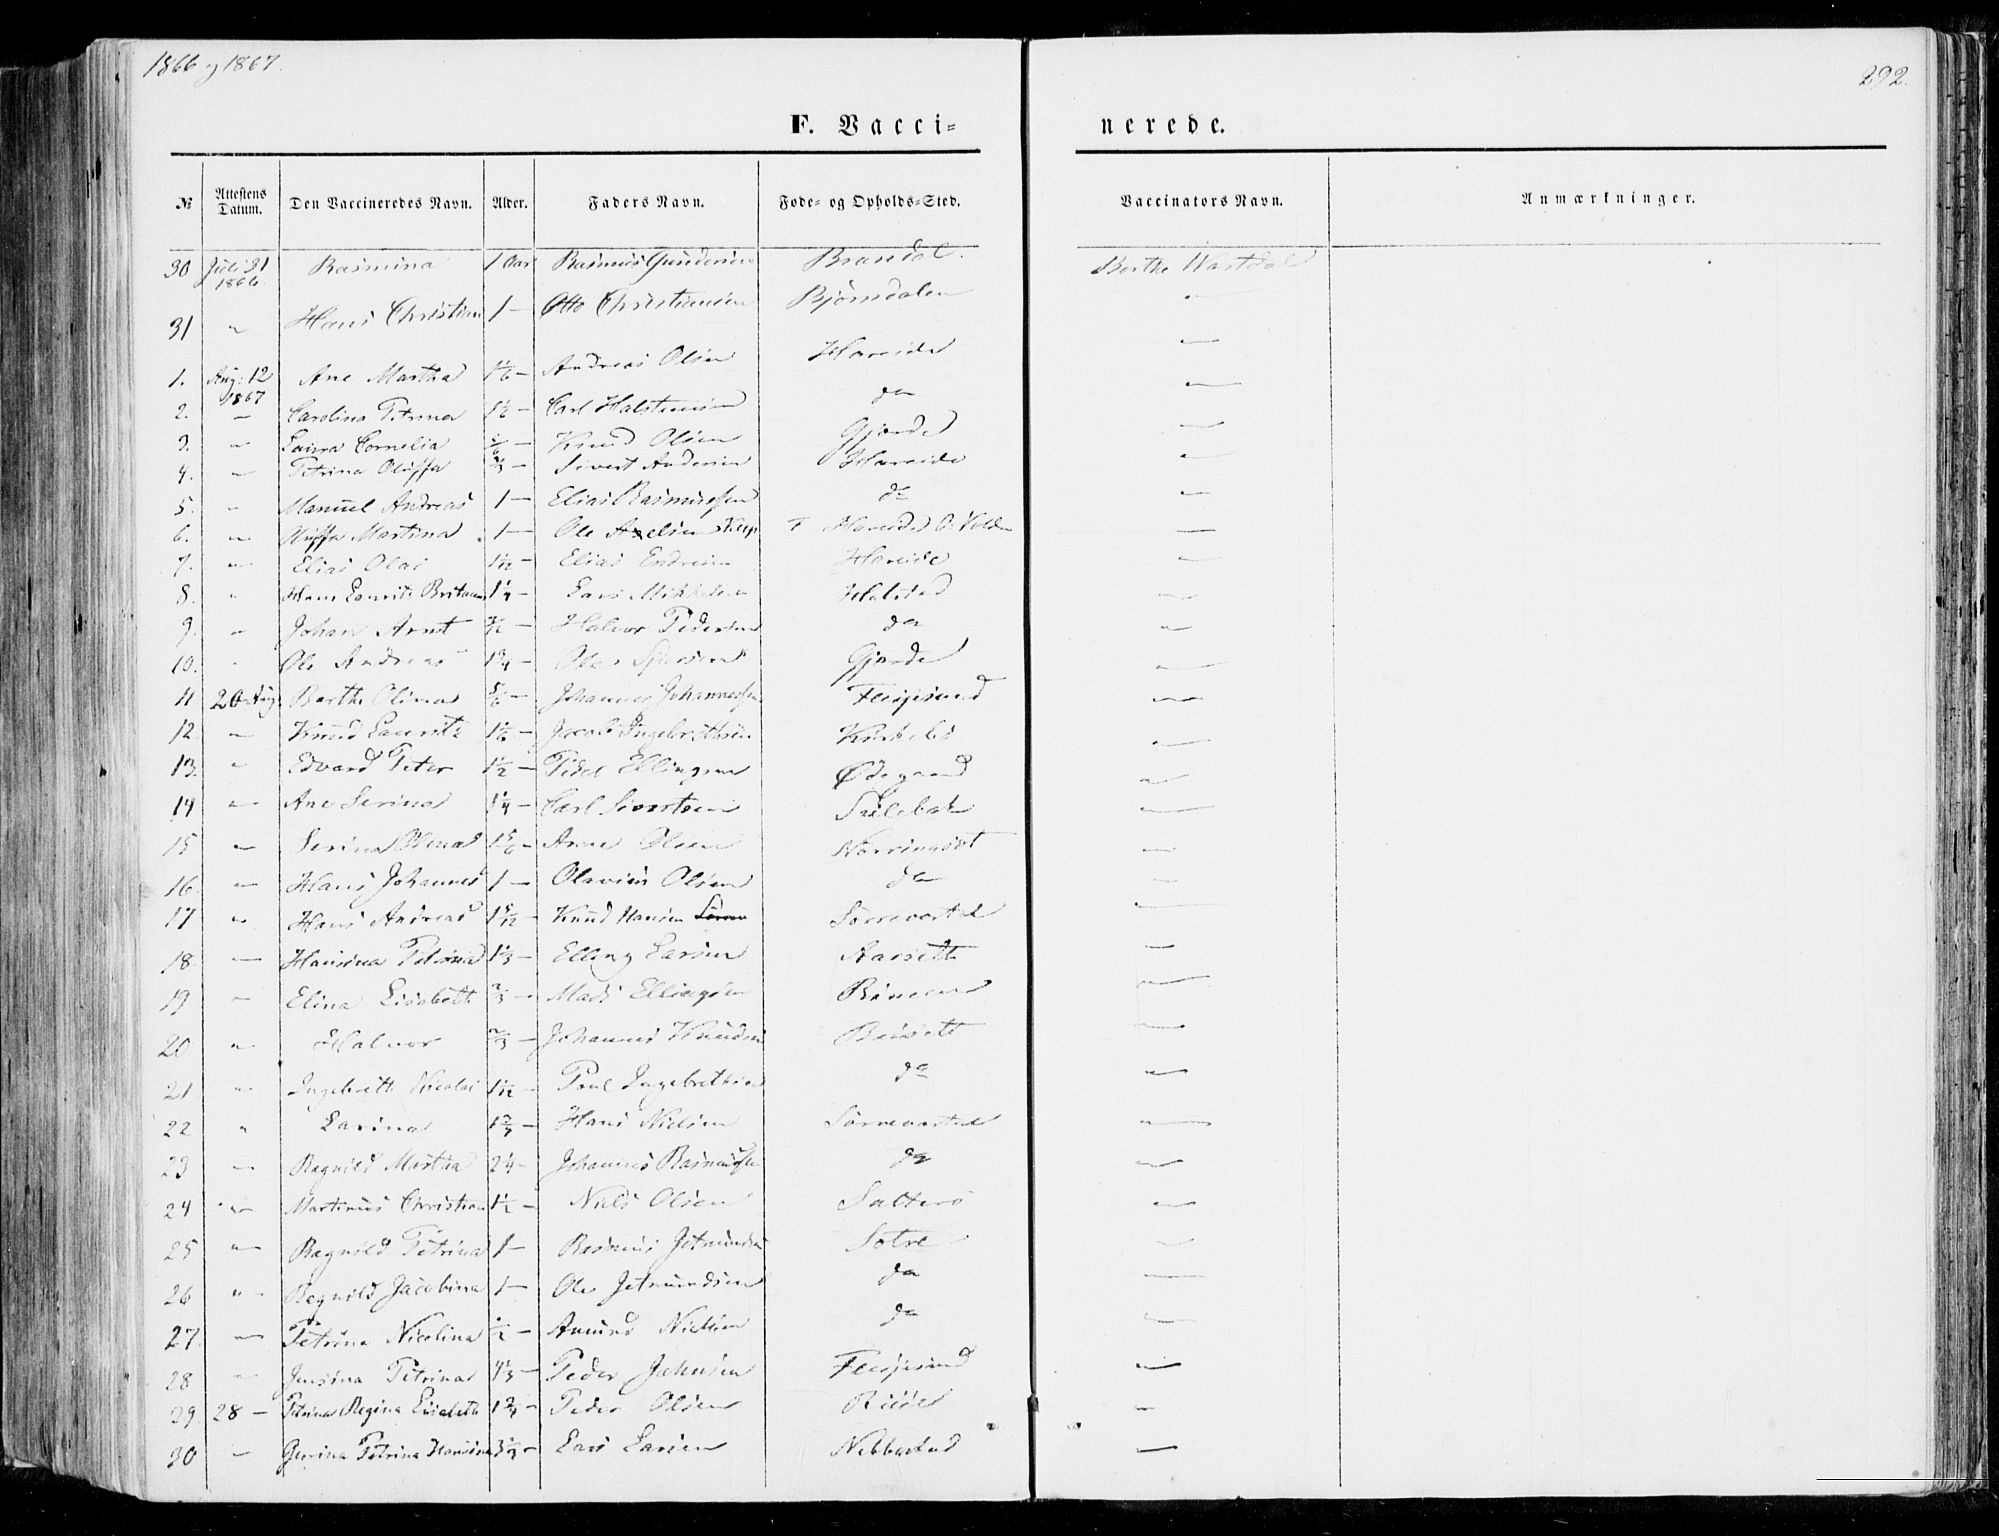 1866 og 1867.
292.
F. Vacci=
nerede.
№ Attestens Datum. Den Vaccineredes Navn. Alder. Faders Navn. Føde= og Opholds=Sted. Vaccinators Navn. Anmærkninger.
30 Juli 31 1866. Rasmina 1 Aar Rasmus Gundersen Brandal. Berthe Wartdal
31 " Hans Christian 1 — Otto Christiansen Bjørnsdalen —
1. Aug: 12 1867 Ane Martha 1 1/6 — Andreas Olsen Hareide —
2. — Carolina Petrina 1 1/2 — Carl Halsteinsen do —
3. " Laura Cornelia Knud Olsen Gjerde —
4. " Petrina Oluffa 2/3 — Sivert Andersen Hareide —
5. " Manuel Andreas 1 — Elias Rasmussen do —
6. " Oluffa Martina 1 — Ole Axelsen F Hareide O. Volden —
7. " Elias Olai 1 1/12 — Elias Endresen Hareide —
8. " Hans Laurits 1 1/4 — Lars Mikkelsen Halstad —
9. " Johan Arnt 7/12 — Halvor Pedersen do —
10. " Ole Andreas 1 3/4 — Ole Gjerde —
11 26 Aug. Berthe Olina 5/6 — Johannes Johannessen Flesjesund —
12. " Knud Lauritz 1 1/6 — Jacob Ingebrethsen Kirkebø —
13. " Edvard Peter 1 1/2 — Peder Ellingsen Ødegaard —
14 " Ane Serina 1 1/4 — Carl Sivertsen —
15 " Serina Olina 1 5/6 — Arne Olsen —
16. " Hans Johannes 1 — Olavius Olsen do —
17 " Hans Andreas 1 5/12 — Knud Hansen Sørrevartdal —
18. — Hansina Petrina 1 1/3 — Elling Larsen Aarsett —
19 " Elina Lisebeth 2/3 — Mads Ellingsen —
20 " Halvor 2/3 — Johannes Knudsen —
21 " Ingebrith Nicolai 1 1/12 — Poul Ingebrethsen do —
22 " Larina Hans Nielsen Sørrevartdal —
23 " Ragnild Martha 2 1/4 — Johannes Rasmussen do —
24 " Martinus Christian 1 1/2 — Niels Olsen Saltere —
25 " Ragnild Petrina 1 — Rasmus Jetmundsen Sotre —
26 " Ragnild Jacobina 1 — Ole Jetmundsen do —
27 — Petrina Nicolina 1/2 — Amund Nielsen do —
28 " Jensina Petrina Peder Johnsen Flesjesund —
29 28 — Petrina Regina Elisabeth 1 3/4 — Peder Olsen —
30 " Petrina Hansina Lars Larsen Nebbestad —